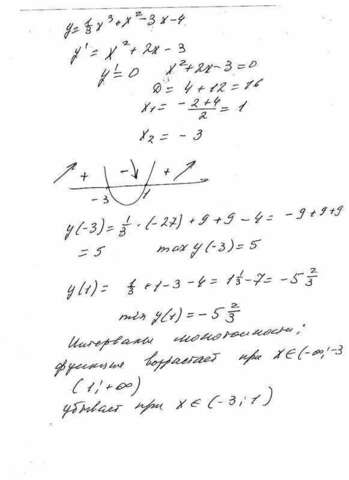 y=1/3x³+x²-3x-4
y'=x²+2x-3
y'=0 x²+2x-3=0
D=4+12=16
x₁=-2+4/2=1
x₂=-3
+ - +
-3 1
y(-3)=1/3·(-27)+9+9-4=-9+9+9
=5 max y(-3)=5
y(1)=1/3+1-3-4=1 1/3-7=-5 2/3
min y(1)=-5 2/3
Интервалы монотонности:
функция возрастает при x∈(-∞;-3
(1;+∞)
убывает при x∈(-3;1)